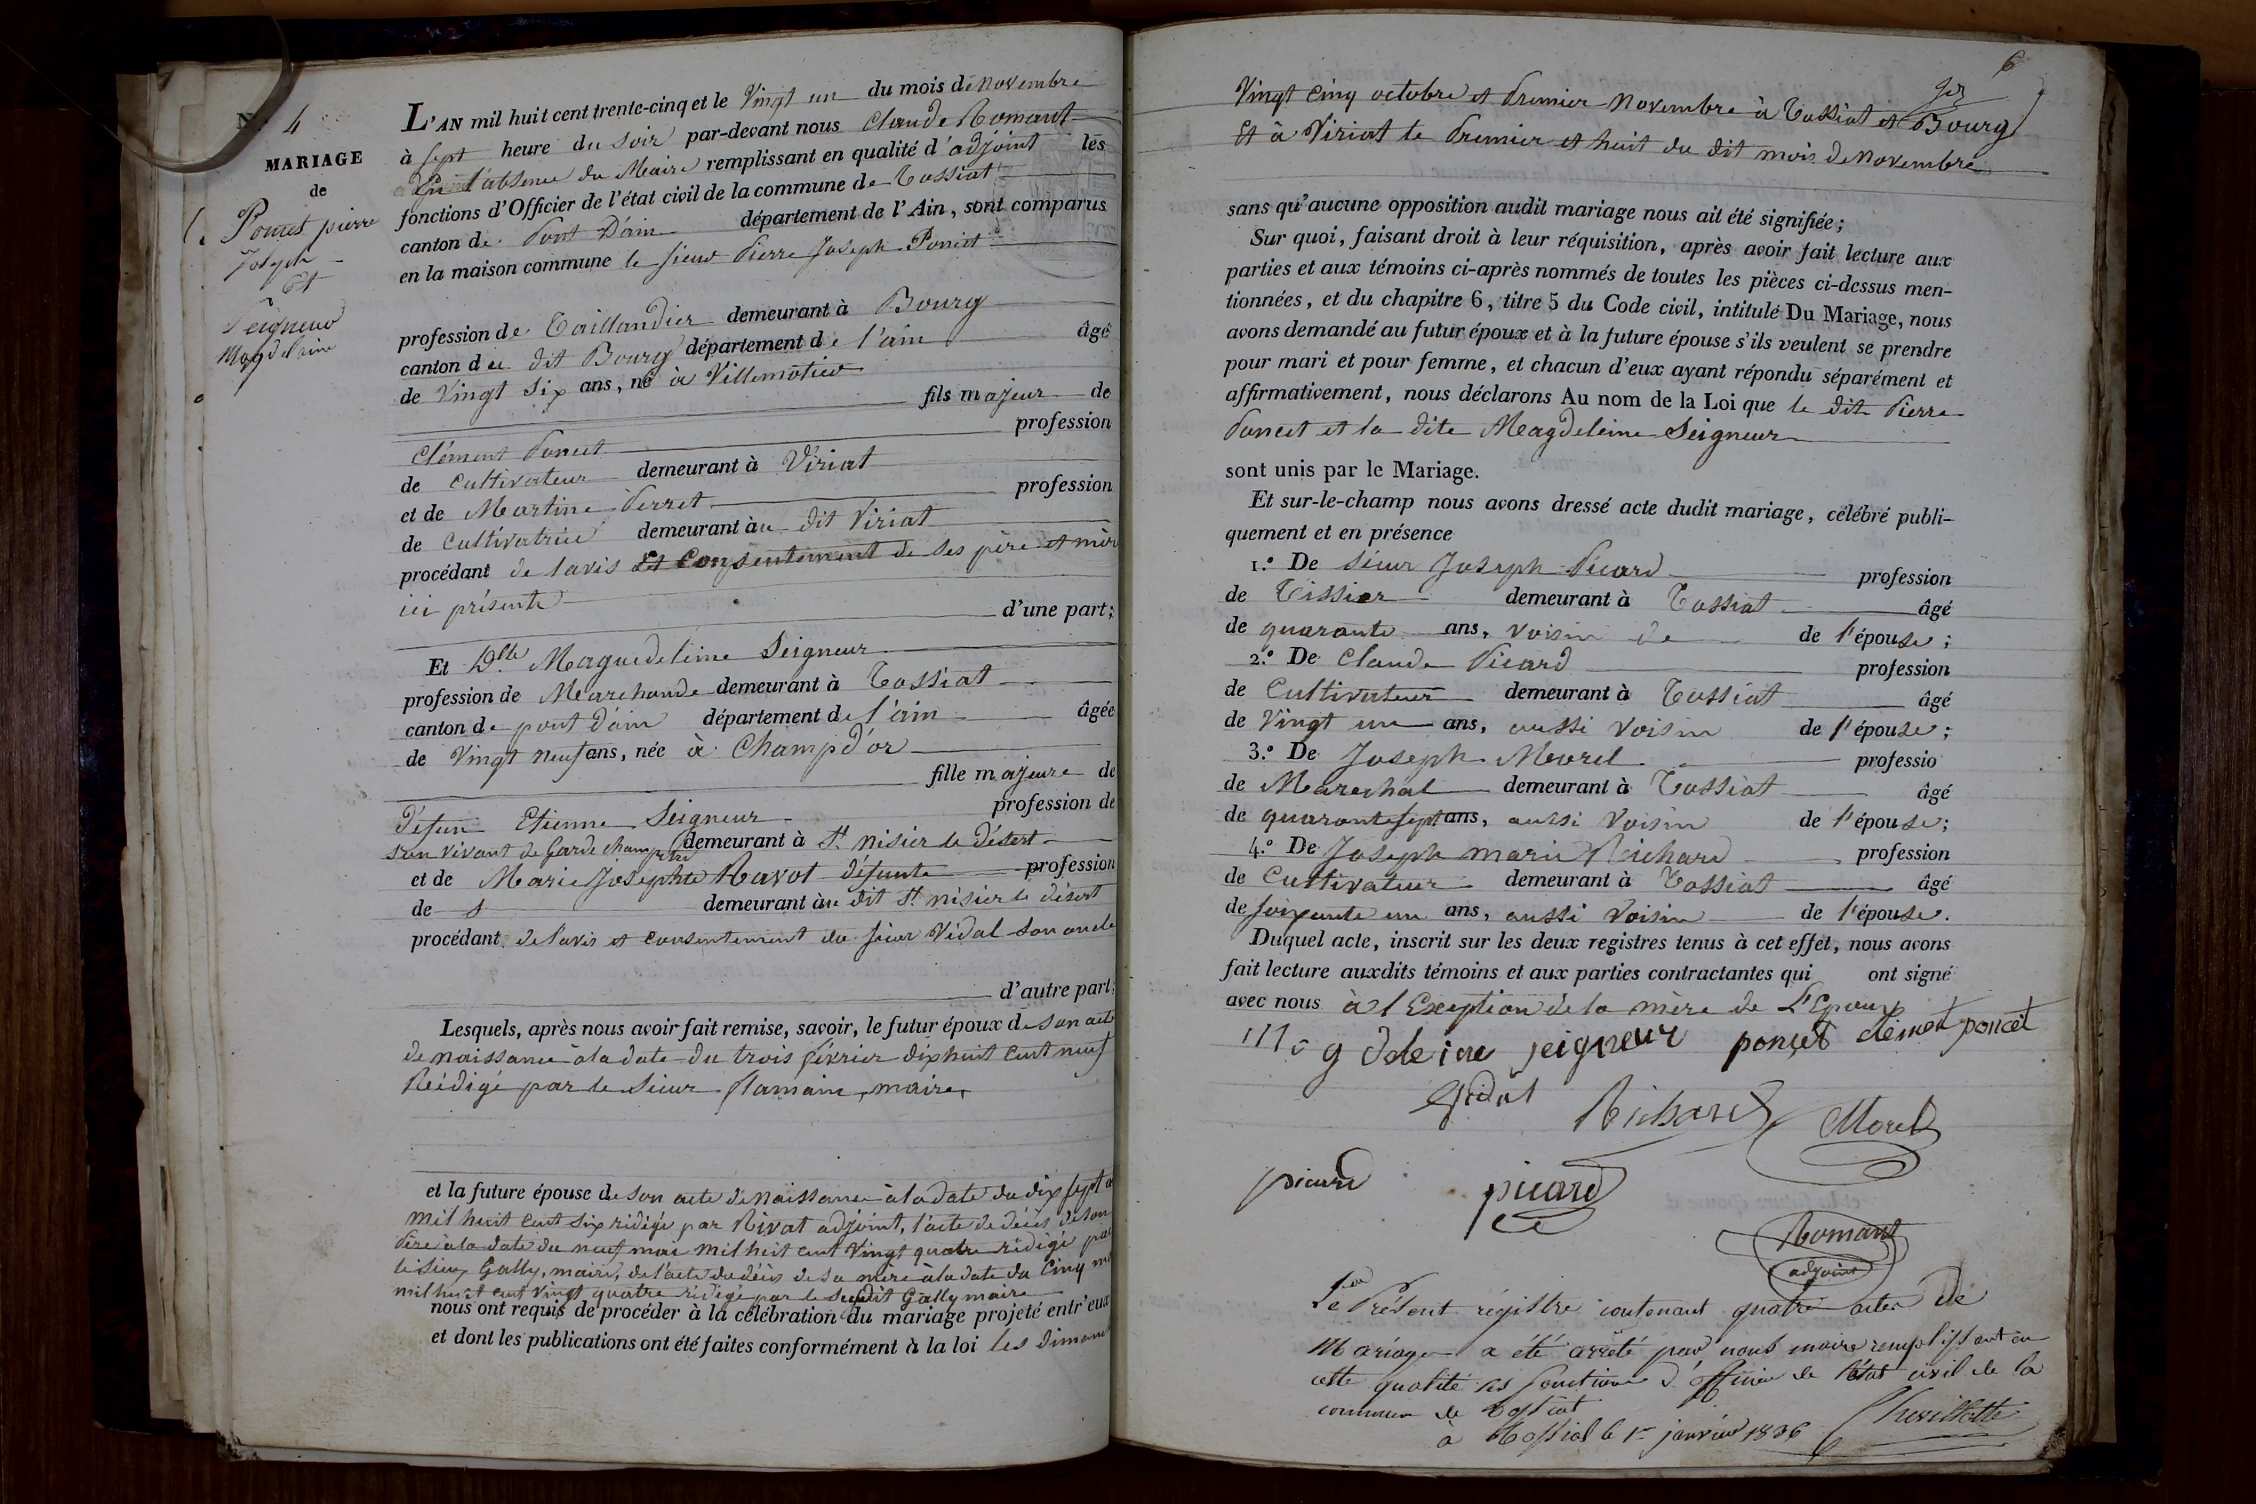 N.º 4
MARIAGE
de
Poncet pierre
Joseph
Et
Seigneur
Magdeleine
L'AN mil huit cent trente-cinq et le Vingt un du mois de novembre
à sept heure du soir par-devant nous Claude Romant
en l'absence du Maire remplissant en qualité d'adjoint les
fonctions d'Officier de l'état civil de la commune de Tossiat
canton de Pont D'ain département de l'Ain, sont comparus
en la maison commune le sieur Pierre Joseph Poncet
profession de Taillandier demeurant à Bourg
canton du dit Bourg département de l'ain âgé
de Vingt six ans, né à Villemotier
fils majeur de
Clément Poncet profession
de Cultivateur demeurant à Viriat
et de Martine Perret profession
de Cultivatrice demeurant au dit Viriat
procédant de l'avis et Consentement de ses père et mère
ici présents
d'une part;
Et Dlle Maguedeleine Seigneur
profession de Marchande demeurant à Tossiat
canton de pont d'ain département de l'ain âgée
de Vingt neuf ans, née à Champ d'or
fille majeure de
défun Etienne Seigneur profession de
son vivant de Garde champêtre demeurant à St nisier le Désert
et de Marie Josephte Ravot défunte profession
de demeurant au dit St nisier le désert
procédant de l'avis et consentement du sieur Vidal son oncle
d'autre part;
Lesquels, après nous avoir fait remise, savoir, le futur époux de son acte
de naissance à la date du trois février dix huit cent neuf
Rédigé par le sieur Flamain, maire,
et la future épouse de son acte de naissance à la date du dix sept
mil huit cent six rédigé par Rivat adjoint, l'acte de décès de son
Père à la date du neuf mai mil huit cent Vingt quatre rédigé par
le sieur Gally, maire, de l'acte du décès de sa mère à la date du Cinq
mil huit cent vingt quatre rédigé par le susdit Gally maire
nous ont requis de procéder à la célébration du mariage projeté entr'eux
et dont les publications ont été faites conformément à la loi les dimanches
6
Vingt Cinq octobre et Premier novembre à Tossiat et Bourg
Et à Viriat le Premier et huit du dit mois de novembre
sans qu'aucune opposition audit mariage nous ait été signifiée;
Sur quoi, faisant droit à leur réquisition, après avoir fait lecture aux
parties et aux témoins ci-après nommés de toutes les pièces ci-dessus men-
tionnées, et du chapitre 6, titre 5 du Code civil, intitulé Du Mariage, nous
avons demandé au futur époux et à la future épouse s'ils veulent se prendre
pour mari et pour femme, et chacun d'eux ayant répondu séparément et
affirmativement, nous déclarons Au nom de la Loi que le dit Pierre
Poncet et la dite Magdeleine Seigneur
sont unis par le Mariage.
Et sur-le-champ nous avons dressé acte dudit mariage, célébré publi-
quement et en présence
1.º De sieur Joseph Picard profession
de Tissier demeurant à Tossiat âgé
de quarante ans, voisin de de l'épouse;
2.º De Claude Picard profession
de Cultivateur demeurant à Tossiat âgé
de Vingt un ans, aussi Voisin de l'épouse;
3.º De Joseph Morel professio
de Marechal demeurant à Tossiat âgé
de quarante sept ans, aussi Voisin de l'épouse;
4.º De Joseph marie Richard profession
de Cultivateur demeurant à Tossiat âgé
de soixante un ans, aussi Voisin de l'épouse.
Duquel acte, inscrit sur les deux registres tenus à cet effet, nous avons
fait lecture auxdits témoins et aux parties contractantes qui ont signé
avec nous à l'Exeption de la mère de L'Epoux
magdeleine seigneur poncet clément poncet
Vidal Richard Morel
picard picard
Romant
adjoint
Le Présent régistre contenant quatre actes De
Mariage a été arrêté par nous maire remplissant en
cette qualité les fonctions d'officier de l'état civil de la
commune de Tossiat
à Tossiat le 1er janvier 1836